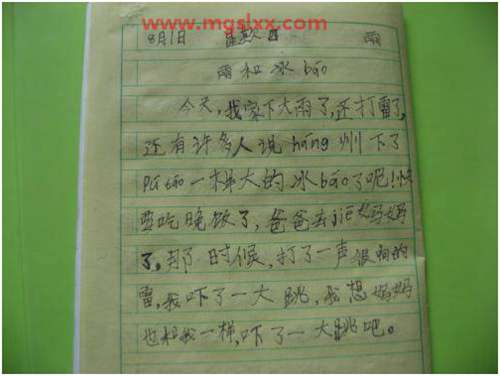 www.mgslxx.com
8月1日 星期四 雨
雨和冰báo
今天，我家下大雨了，还打雷了，
还有许多人说háng州下了
Pú táo一样大的冰báo了呢！快
要吃晚饭了，爸爸去jiē妈妈
了，那时候，打了一声很响的
雷，我吓了一大跳，我想妈妈
也和我一样，吓了一大跳吧。